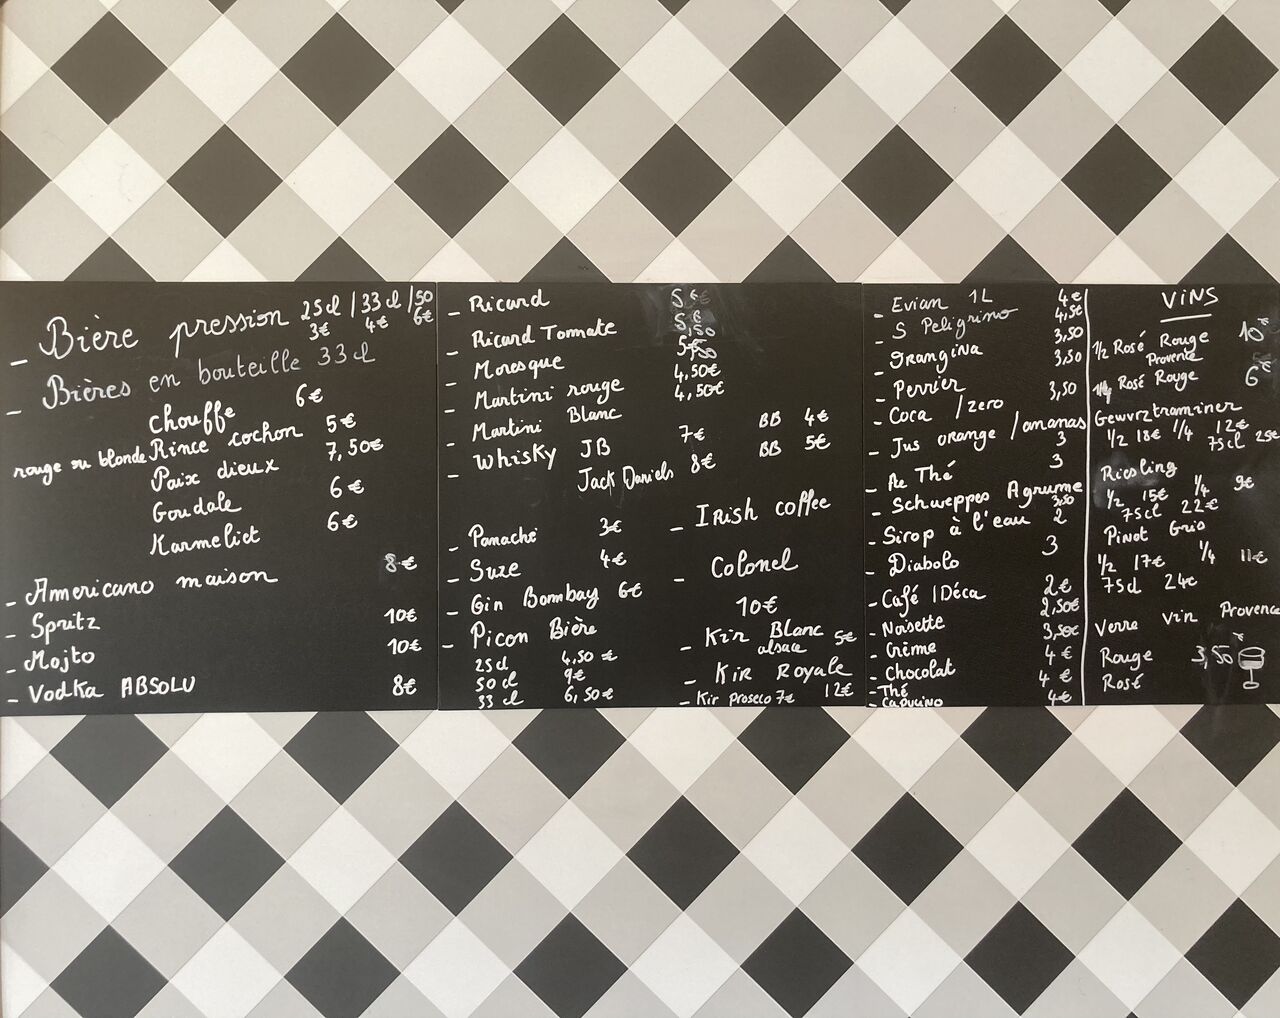 - Bière pression 25cl / 33cl / 50
3€ 4€ 6€
- Bières en bouteille 33cl
chouffe 6€
rouge ou blonde Rince cochon 5€
Paix dieux 7,50€
Goudale 6€
Karmeliet 6€
- Americano maison 8€
- Spritz 10€
- Mojto 10€
- Vodka ABSOLU 8€
- Ricard 5€
- Ricard Tomate
- Moresque
- Martini rouge 4,50€
- Martini Blanc 4,50€
- Whisky JB 7€ BB 4€
Jack Daniels 8€ BB 5€
- Panaché 3€
- Suze 4€
- Gin Bombay 6€
- Picon Bière
25cl 4,50€
50cl 9€
33cl 6,50€
- Irish coffee
- Colonel
10€
- Kir Blanc 5€
alsace
- Kir Royale 12€
- Kir proseco 7€
- Evian 1L 4€
- S Peligrino 4,5€
- Orangina 3,50
- Perrier 3,50
- Coca / zero 3,50
- Jus orange / ananas 3
- Thé 3
- Schweppes Agrume 3,50
- Sirop à l'eau 2
- Diabolo 3
- Café / Déca 2€
- Noisette 2,50€
- Crème 3,50€
- Chocolat 4€
- Thé 4€
- Capucino 4€
VINS
1/2 Rosé Rouge 10€
Provence
Rosé Rouge 6€
Gewurztraminer
1/2 18€ 1/4 12€
75cl 25€
Riesling
1/2 15€ 1/4 9€
75cl 22€
Pinot Gris
1/2 17€ 1/4 11€
75cl 24€
Verre vin Provence
Rouge 3,50€
Rosé